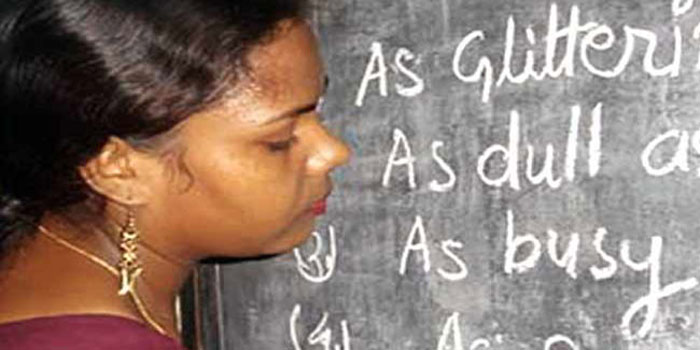 As Glitteri
As dull a
৩) As busy
As